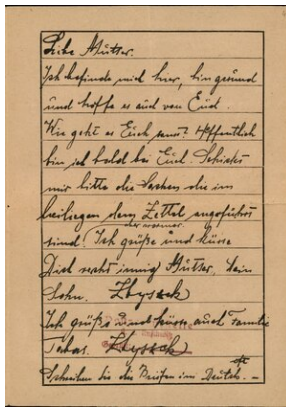 Liebe Mutter.
Ich befinde mich hier, bin gesund
und hoffe es auch von Euch.
Wie geht es Euch sonst? Hoffentlich
bin ich bald bei Euch. Schickt
mir bitte die Sachen die im
beiliegendem Zettel angeführt
sind! Ich grüße und küsse
Dich recht innig Mutter, Dein
Sohn. Zbyszek
Ich grüße und küsse auch Familie
Zbyszek
Schreiben Sie die Briefe im Deutsch. —